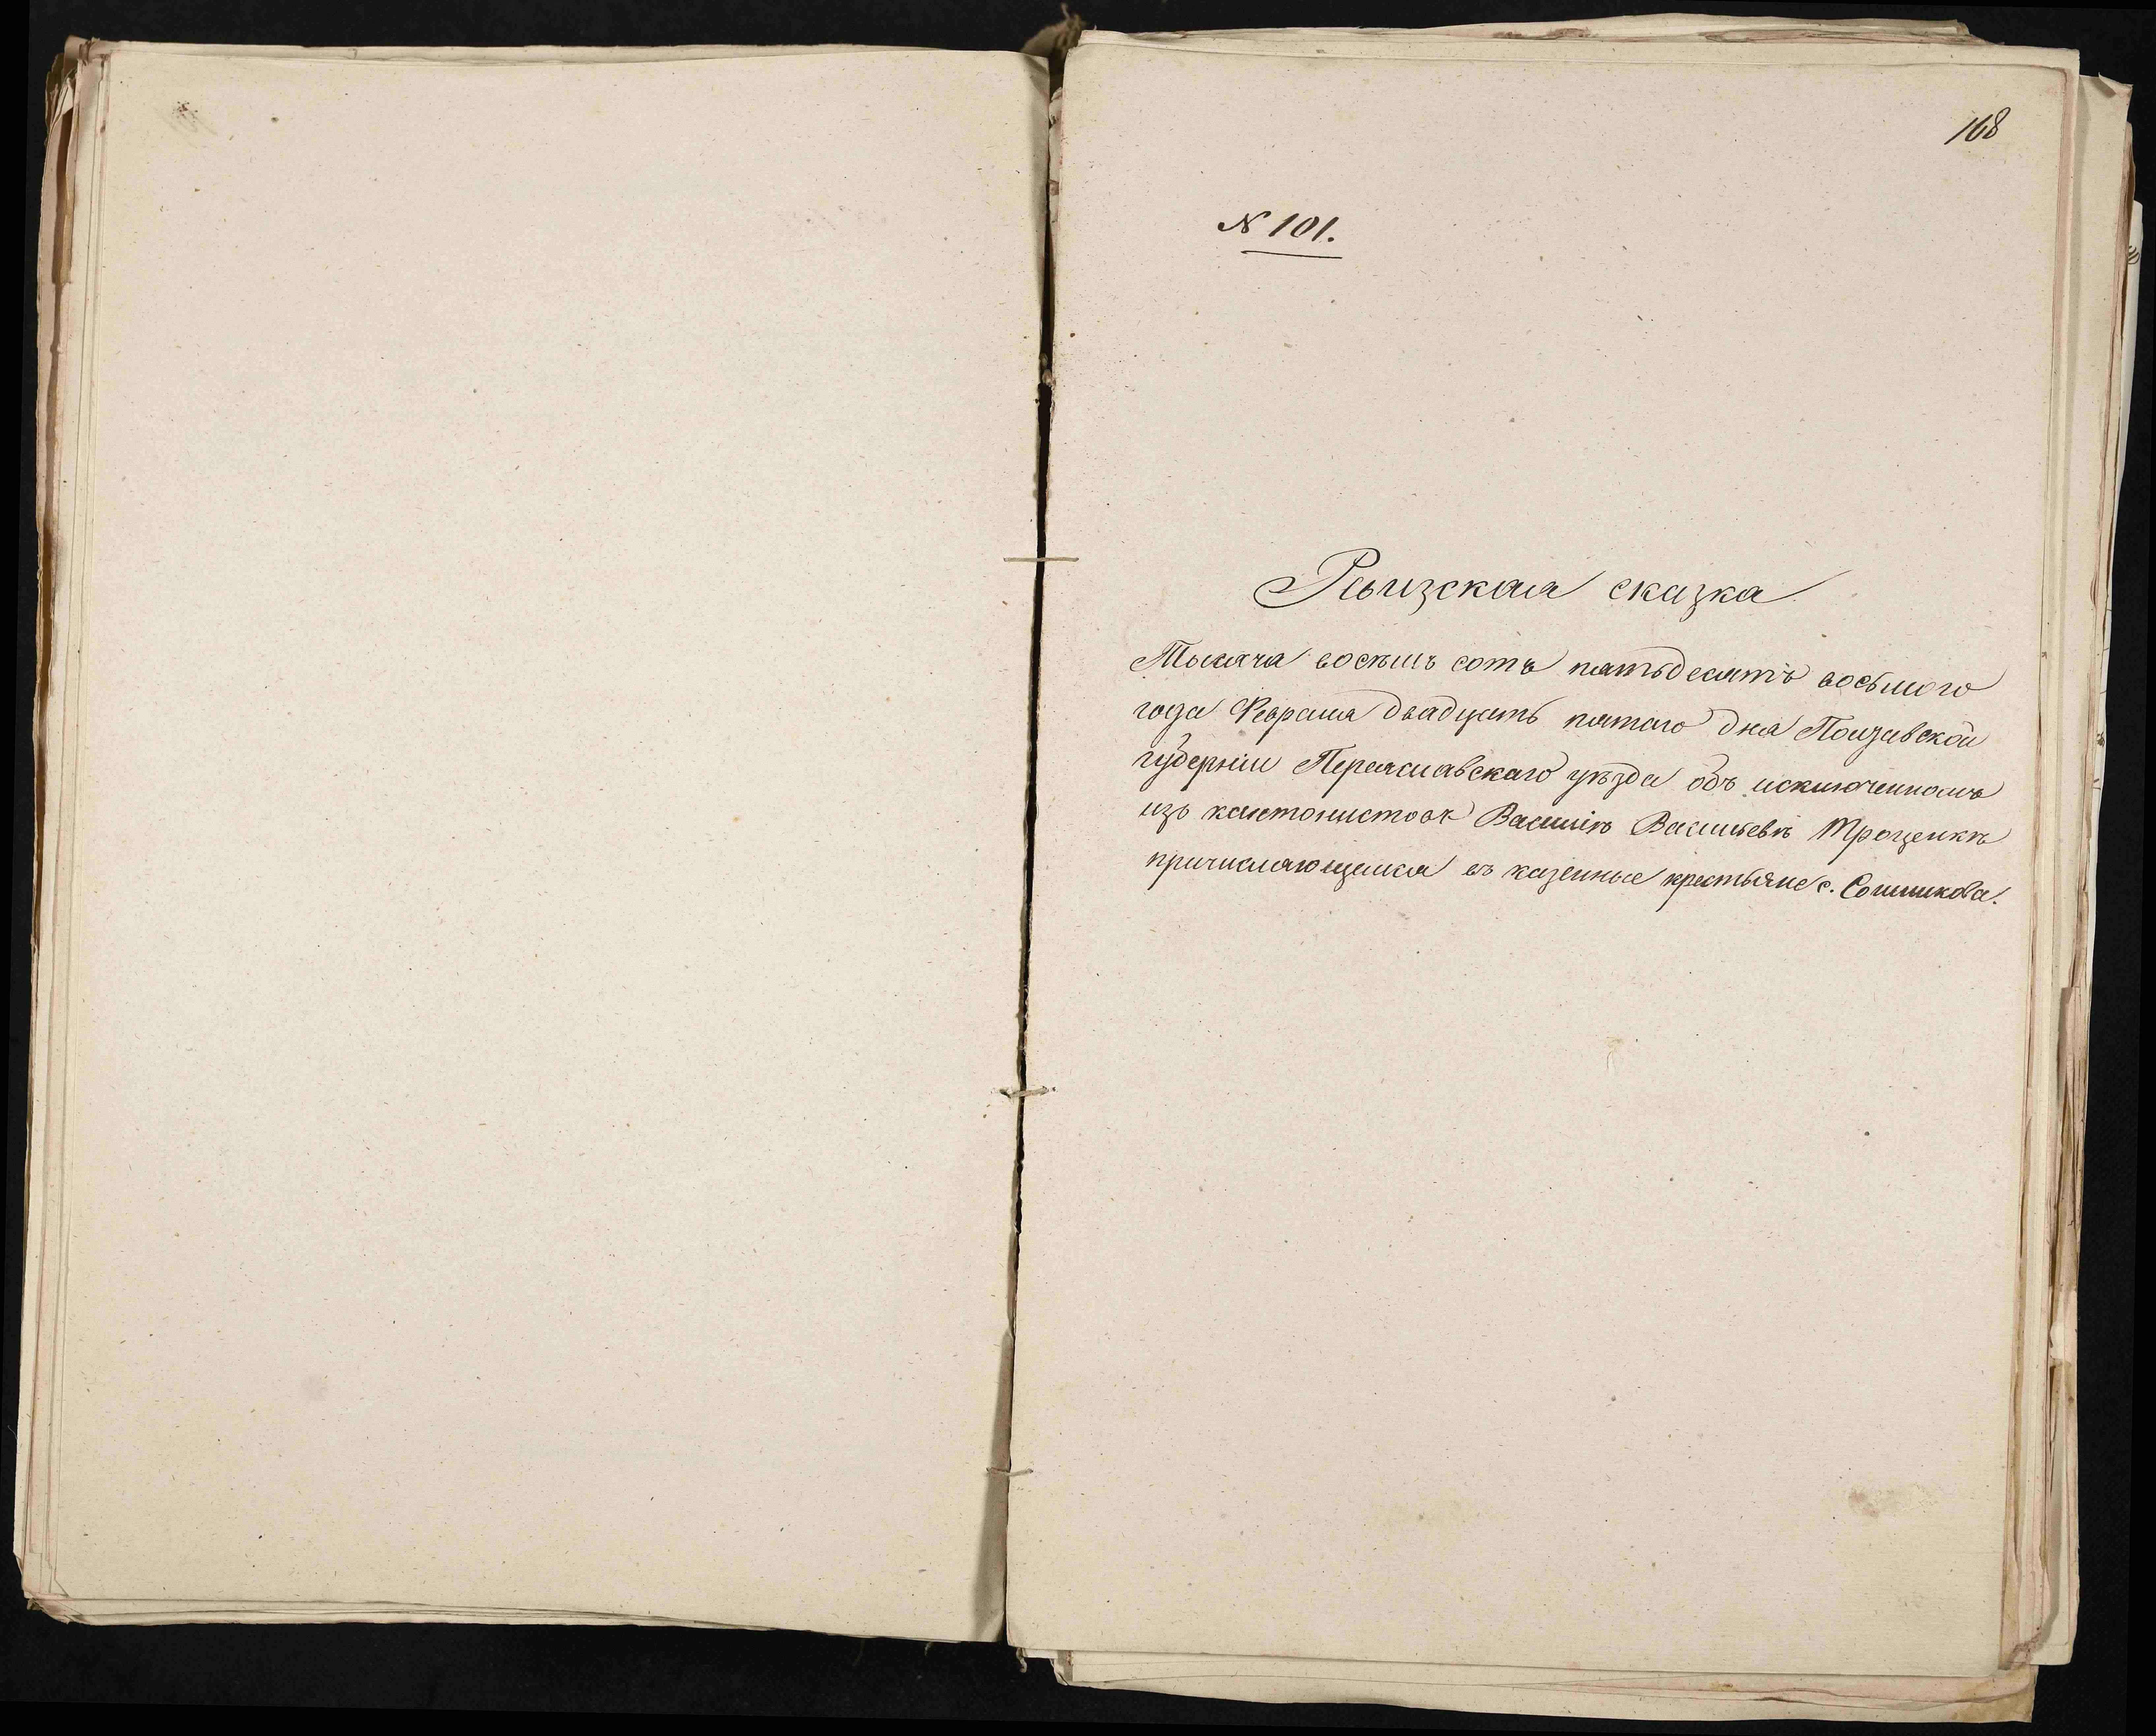 168
№ 101.
Ревизская сказка
Тысяча восемь сотъ пятьдесятъ восьмого
года Февраля двадцать пятаго дня Полтавской
губерніи Переяславскаго уѣзда объ исключенномъ
изъ кантонистовъ Василіѣ Васильевѣ Троценкѣ
причисляющемся въ казенные крестьяне с. Сошникова.